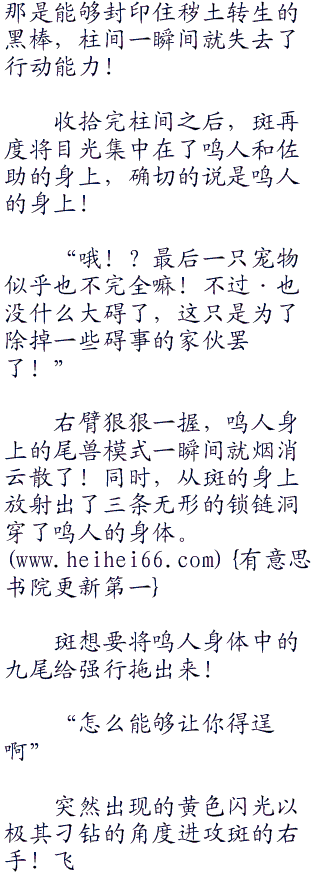 那是能够封印住秽土转生的
黑棒，柱间一瞬间就失去了
行动能力！
收拾完柱间之后，斑再
度将目光集中在了鸣人和佐
助的身上，确切的说是鸣人
的身上！
“哦！？最后一只宠物
似乎也不完全嘛！不过·也
没什么大碍了，这只是为了
除掉一些碍事的家伙罢
了！”
右臂狠狠一握，鸣人身
上的尾兽模式一瞬间就烟消
云散了！同时，从斑的身上
放射出了三条无形的锁链洞
穿了鸣人的身体。
(www.heihei66.com){有意思
书院更新第一}
斑想要将鸣人身体中的
九尾给强行拖出来！
“怎么能够让你得逞
啊”
突然出现的黄色闪光以
极其刁钻的角度进攻斑的右
手！飞